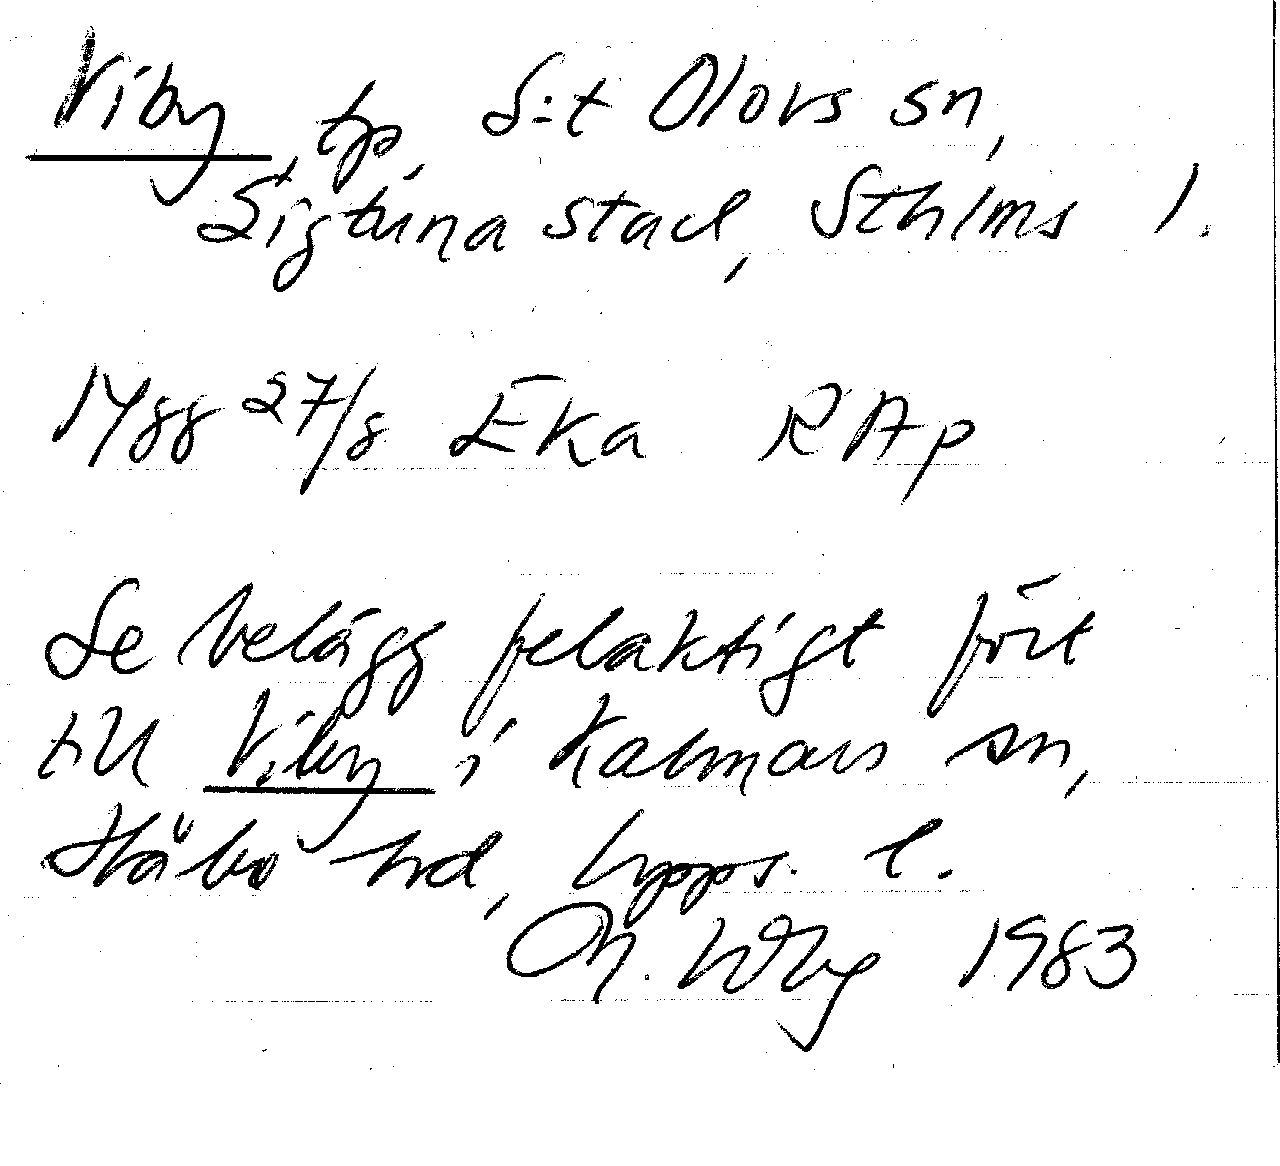 Viby, tp, S:t Olovs sn,
Sigtuna stad, Sthlms l.
1488 27/8 Eka RAp
Se belägg felaktigt fört
till Viby i Kalmars sn,
Håbo hd, Upps. l.
1983